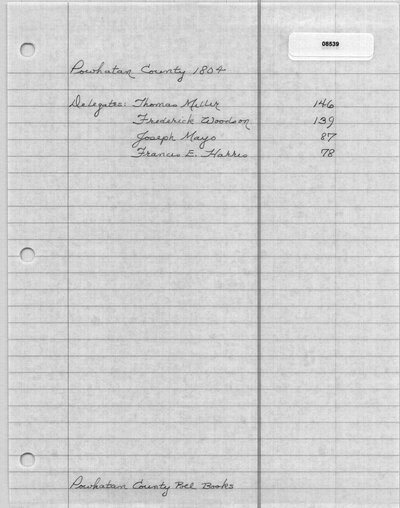 08539
Powhatan County 1804
Delegates: Thomas Miller 146
Frederick Woodson 139
Joseph Mayo 87
Francis E. Harris 78
Powhatan County Poll Books